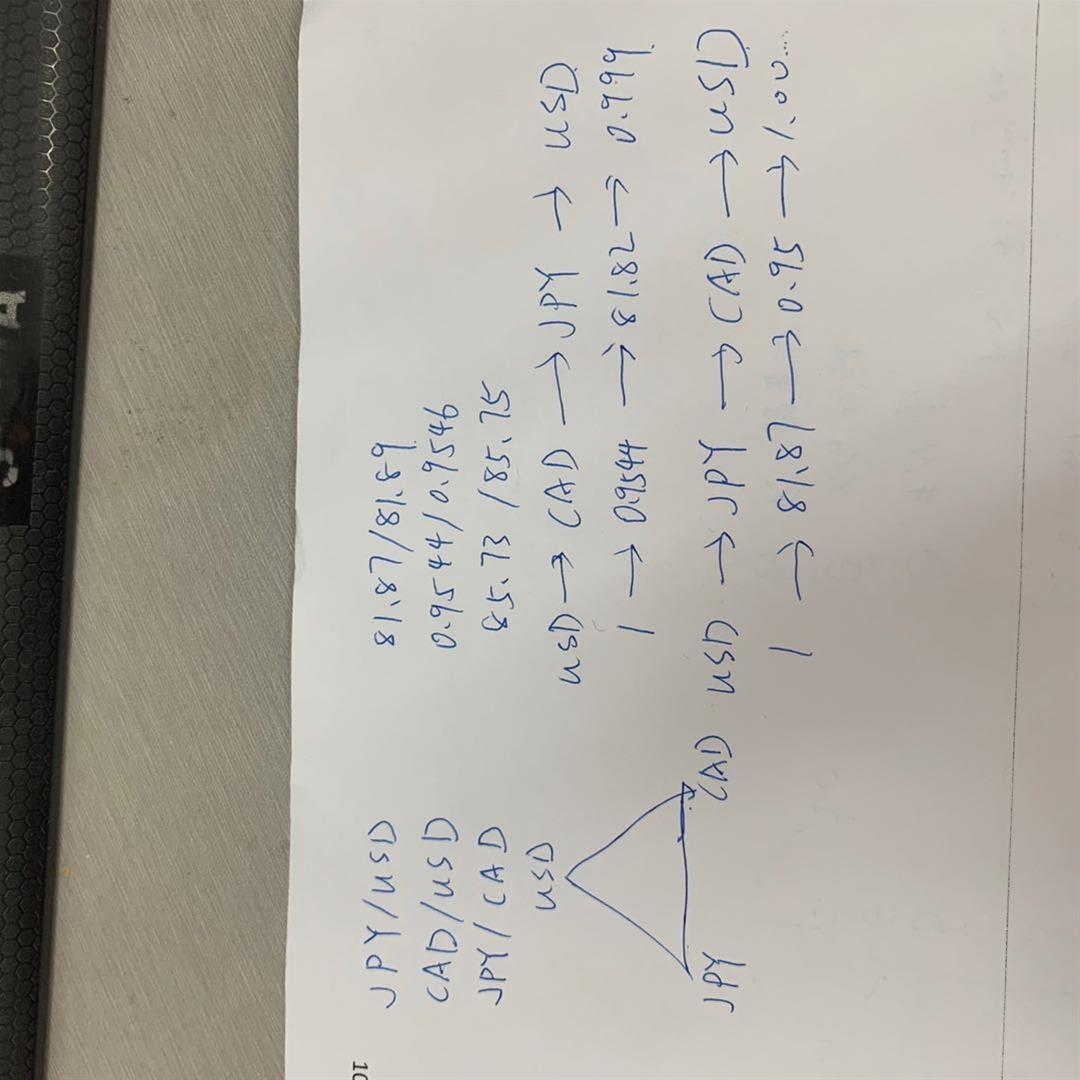 JPY/USD 81.87/81.89
CAD/USD 0.9544/0.9546
JPY/CAD 85.73/85.75
USD
JPY CAD
USD→CAD→JPY→USD
1→0.9544→81.82→0.999
USD→JPY→CAD→USD
1→81.87→0.95→1.00....
10